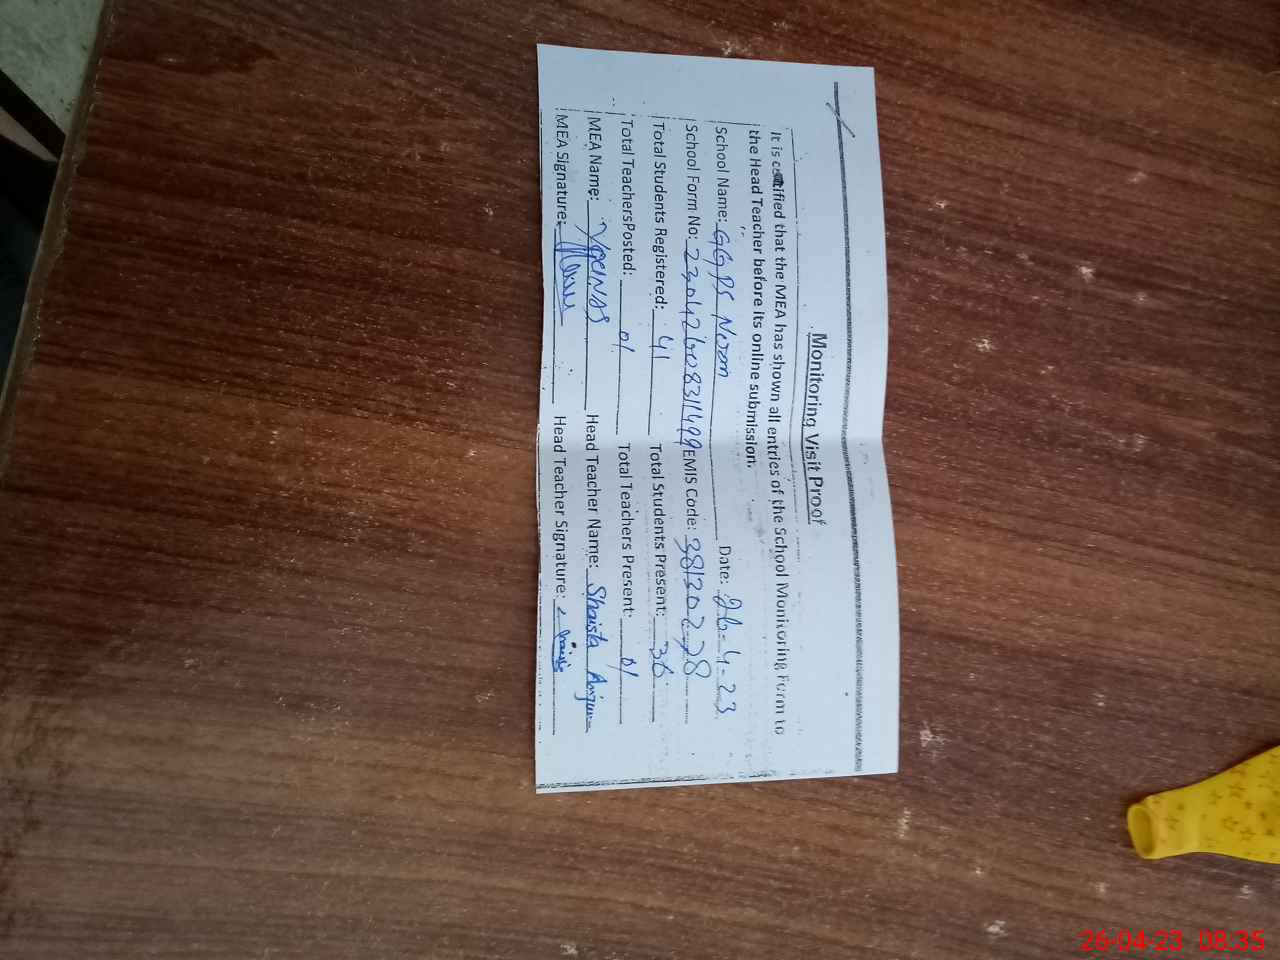 Monitoring Visit Proof
It is certified that the MEA has shown all entries of the School Monitoring Form to
the Head Teacher before its online submission.
School Name: GGPS Noom Date: 26-4-23
School Form No: 2304260831499 EMIS Code: 38130278
Total Students Registered: 41 Total Students Present: 36
Total TeachersPosted: 01 Total Teachers Present: 01
MEA Name: Head Teacher Name: Shaista Anjum
MEA Signature: Head Teacher Signature:
26-04-23 08:35